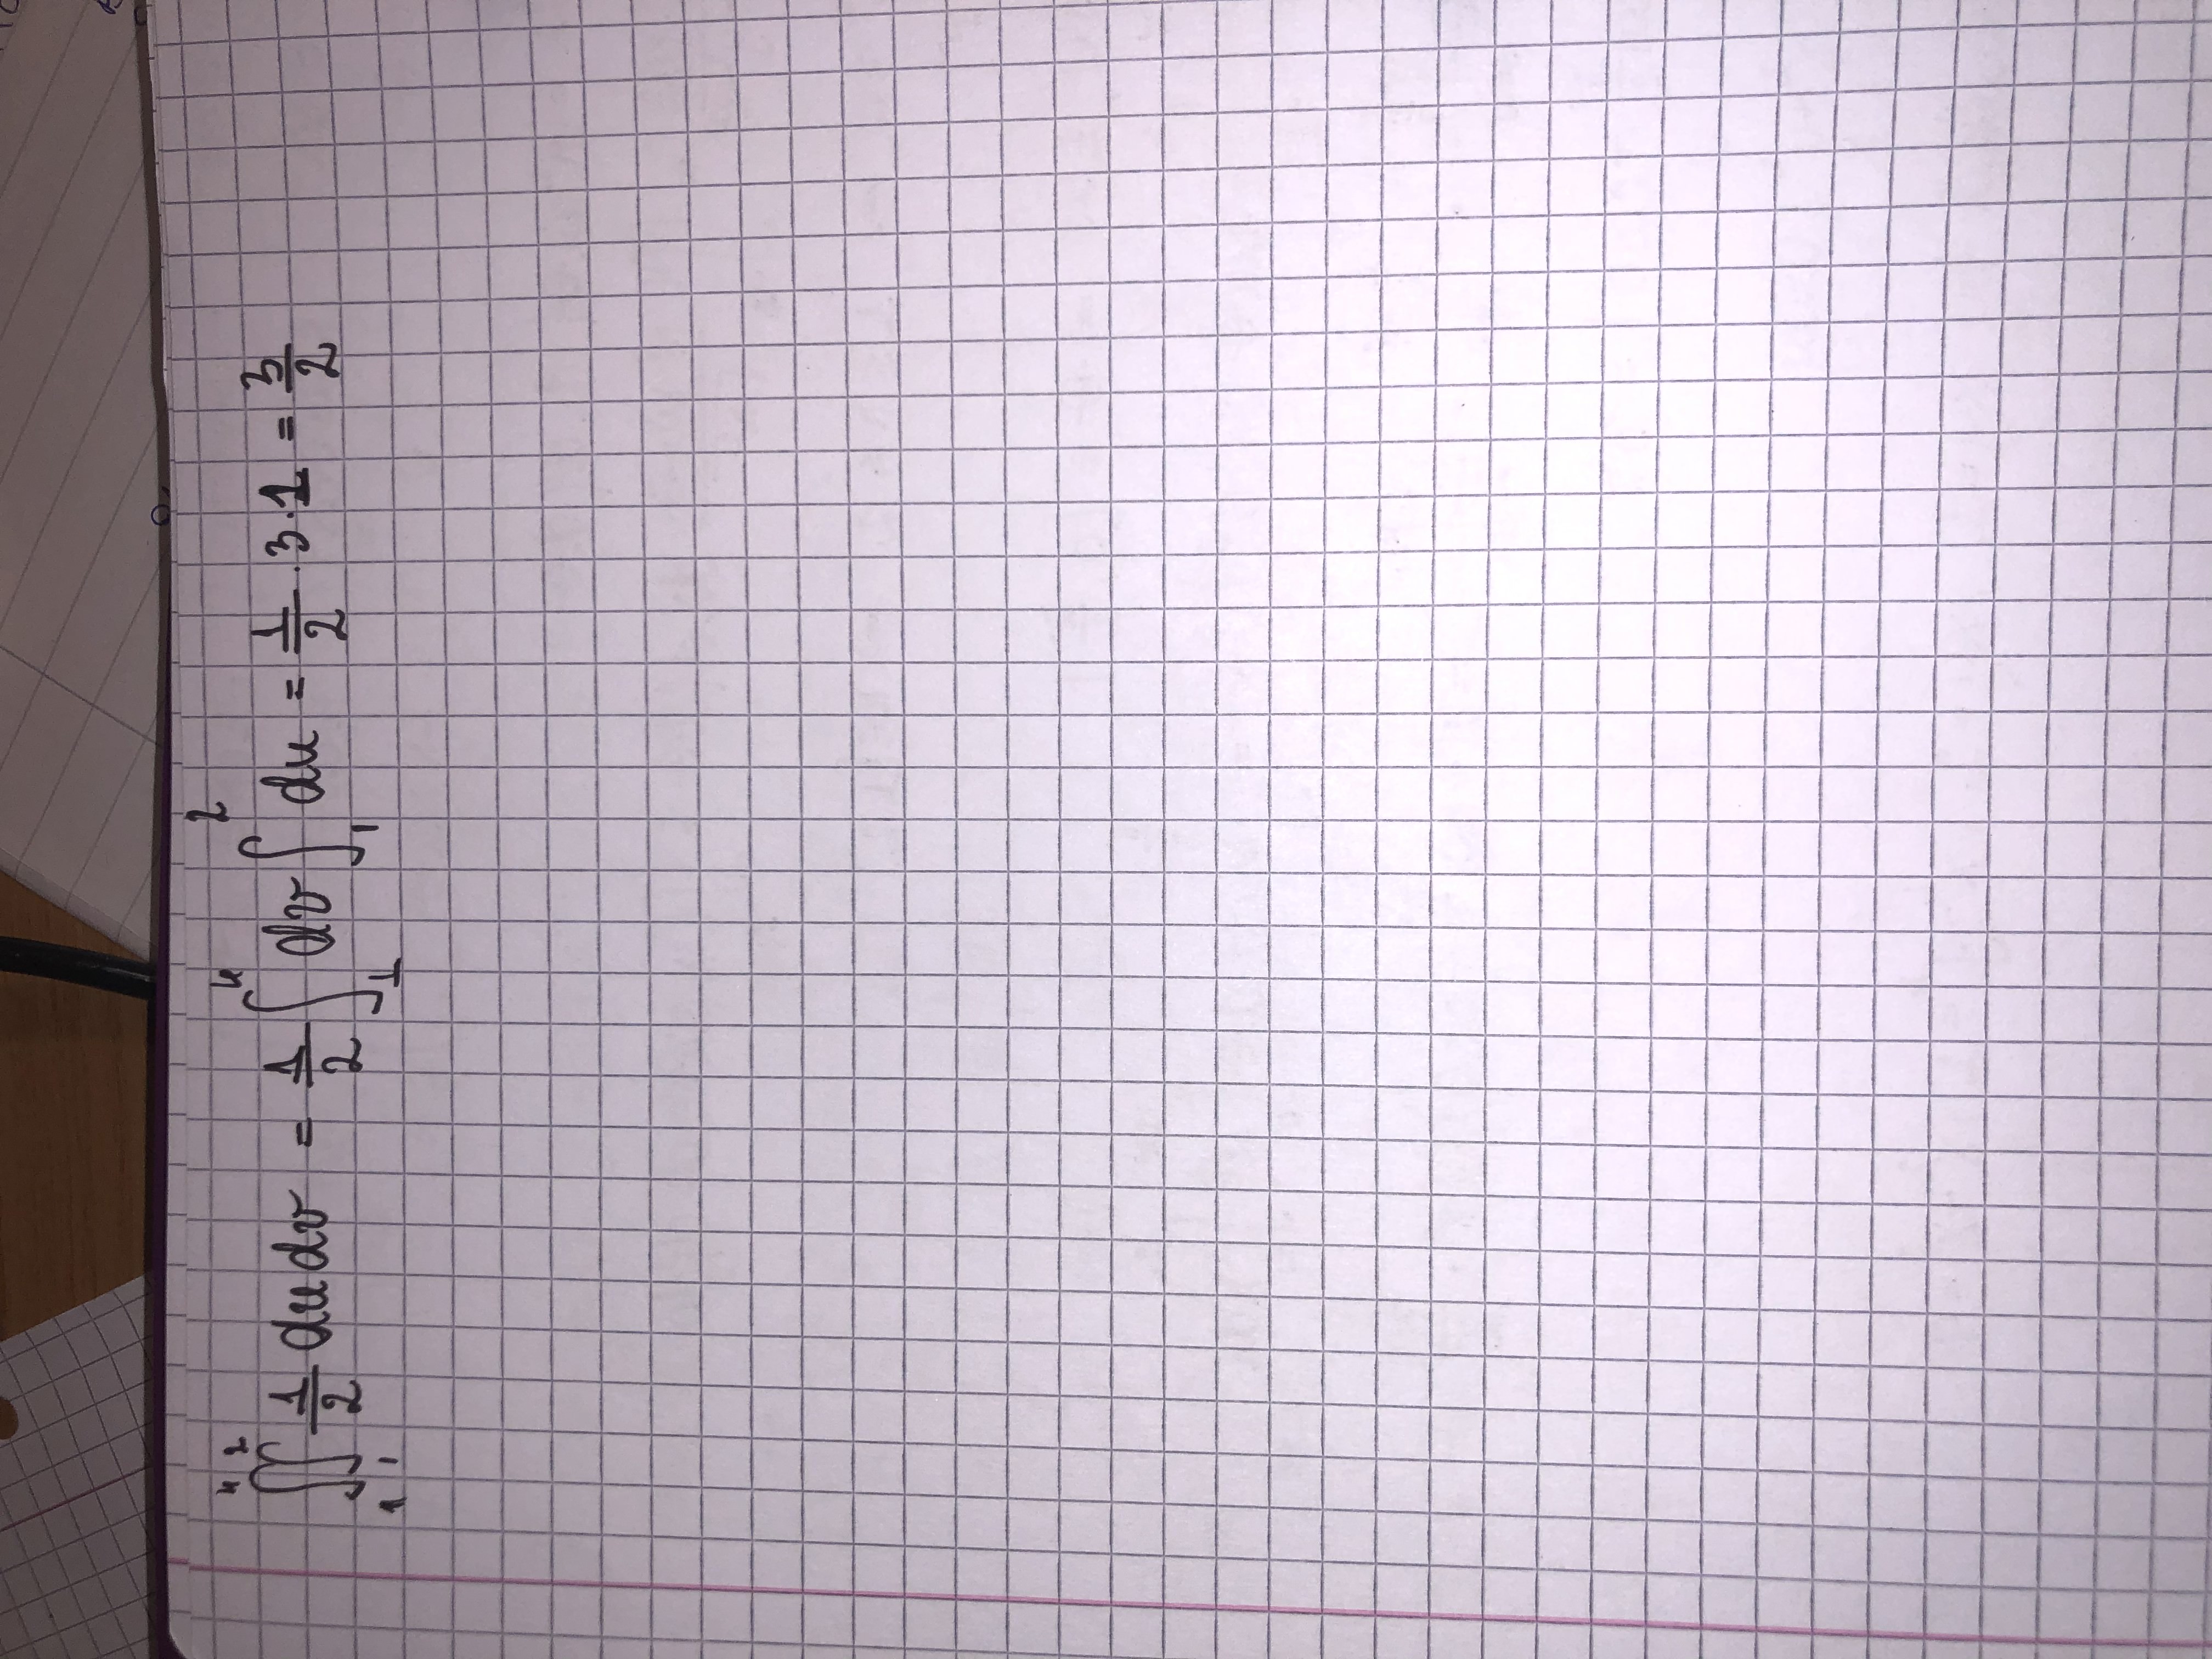 ∫₁⁴∫₁² 1/2 du dv = 1/2 ∫₁⁴ dv ∫₁² du = 1/2 · 3 · 1 = 3/2